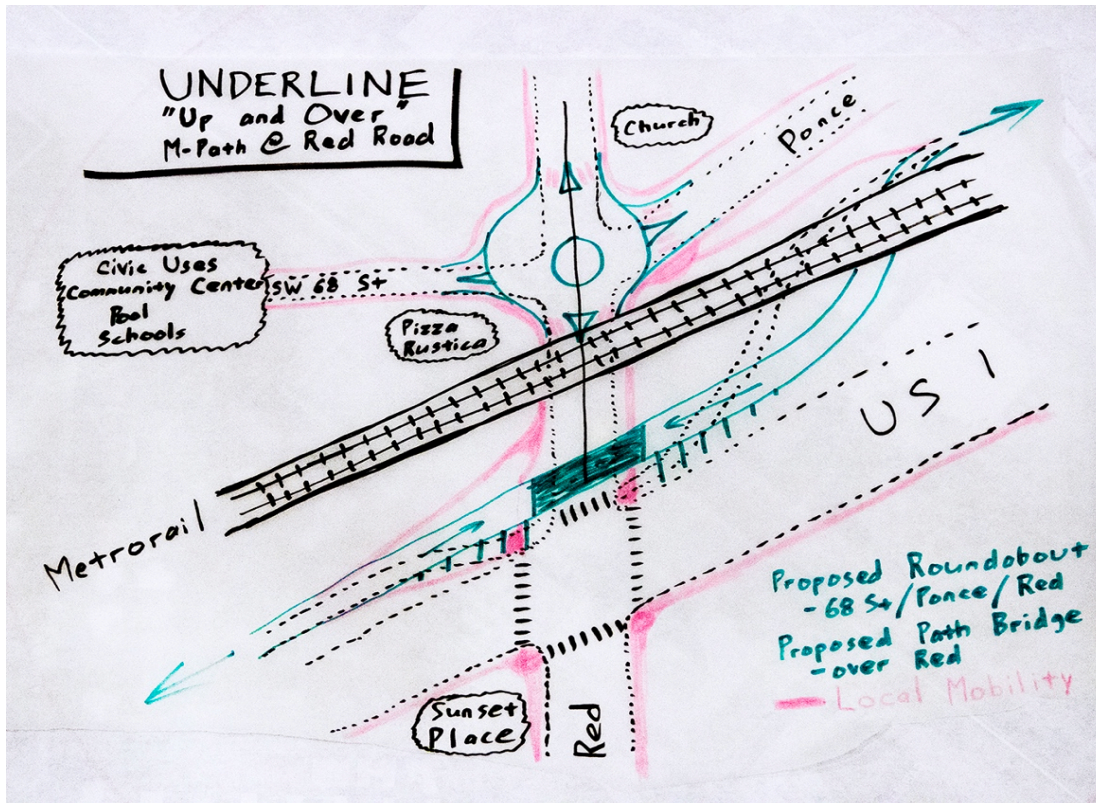 UNDERLINE
"Up and Over"
M-Path @ Red Road
Church
Ponce
Civic Uses
Community Center
Pool
Schools
SW 68 St
Pizza
Rustica
US 1
Metrorail
Proposed Roundabout
- 68 St/Ponce/Red
Proposed Path Bridge
- over Red
Local Mobility
Sunset
Place
Red